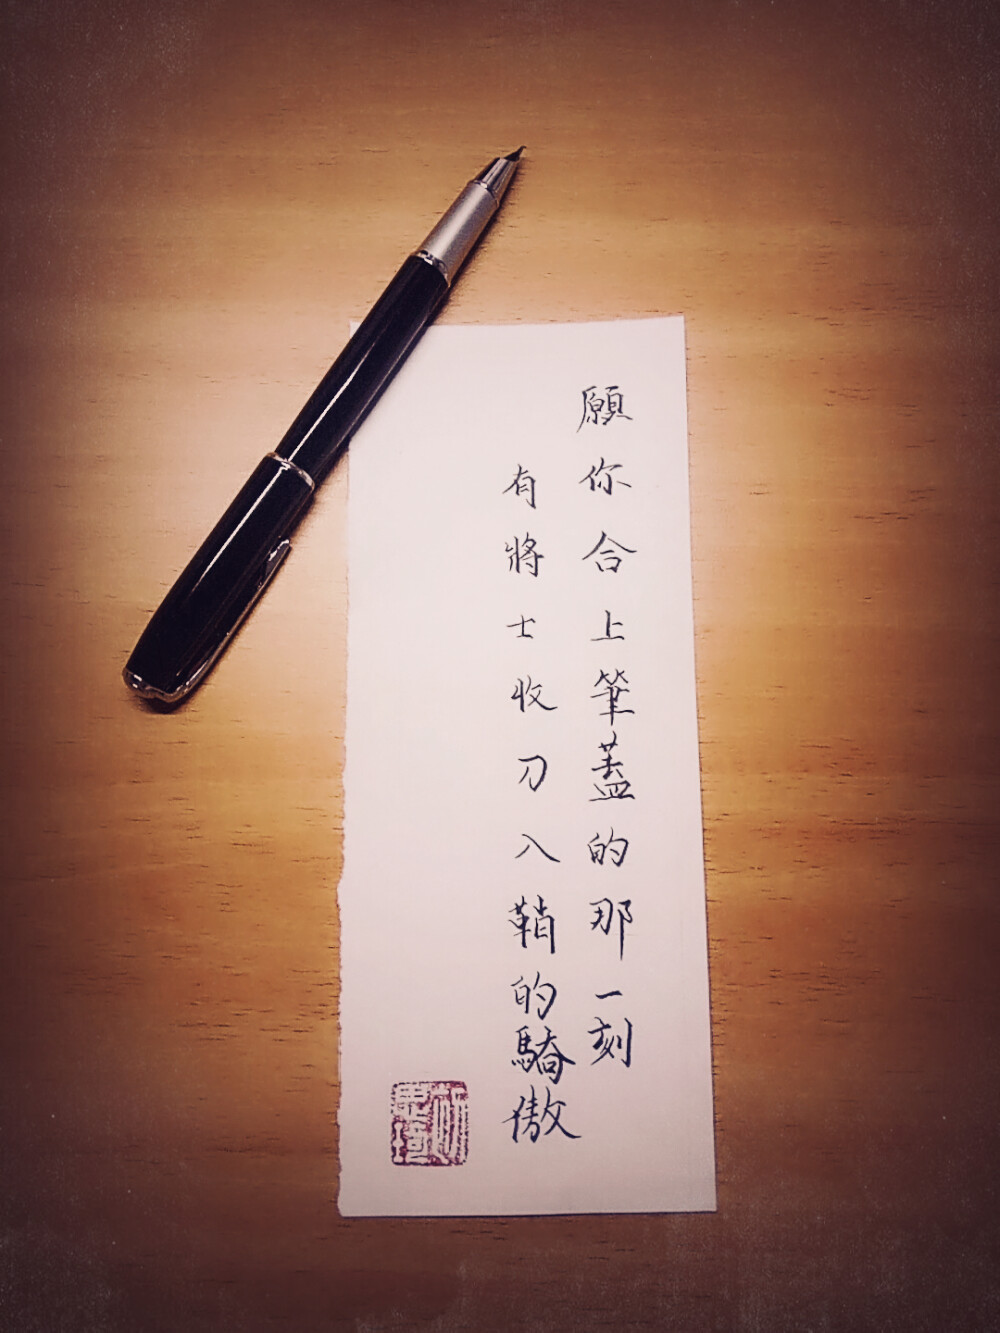 願你合上筆蓋的那一刻
有將士收刀入鞘的驕傲